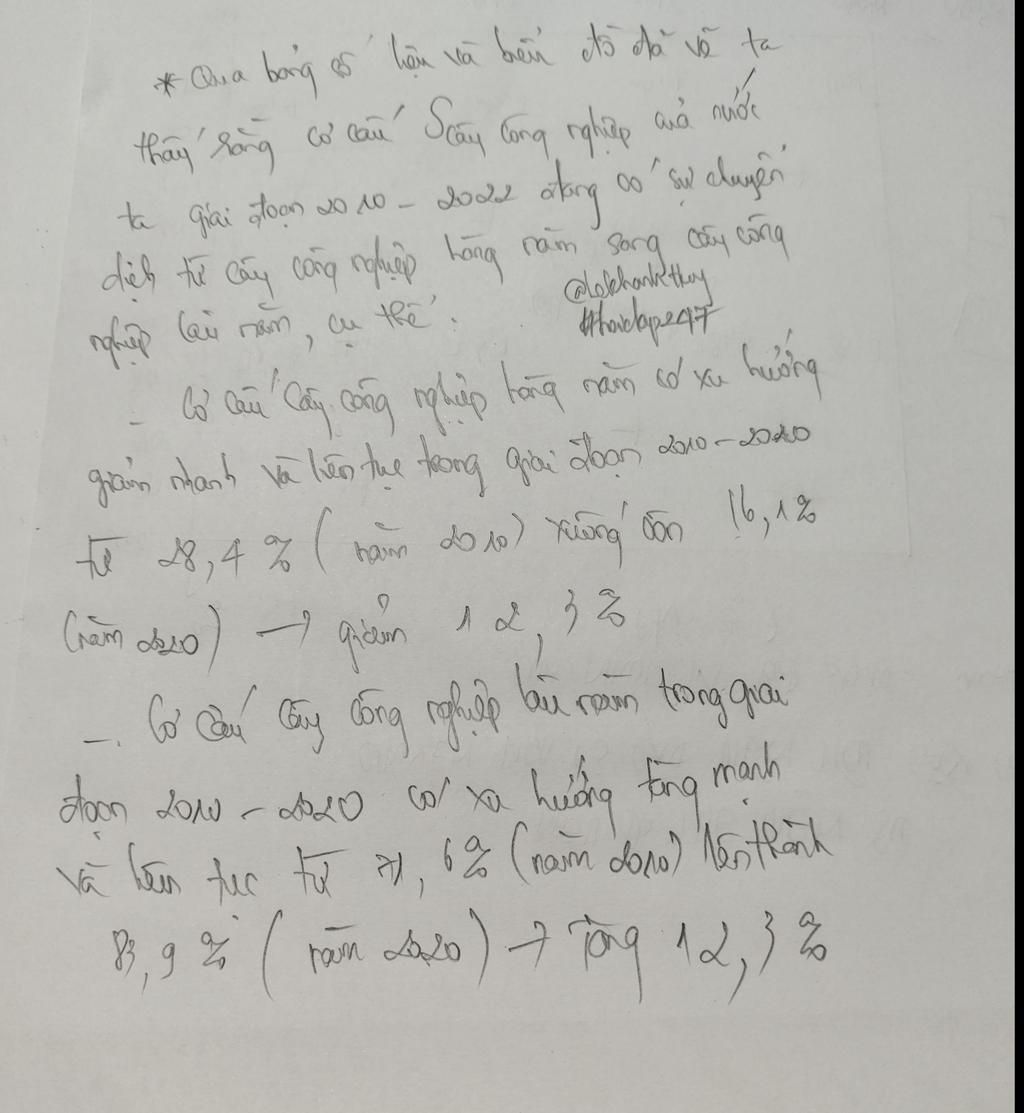 * Qua bảng số liệu và biểu đồ đã vẽ ta
thấy rằng cơ cấu S cây công nghiệp của nước
ta giai đoạn 2010 - 2022 đang có sự chuyển
dịch từ cây công nghiệp hằng năm sang cây công
nghiệp lâu năm, cụ thể:
@lekhanhthuy
#hoidap247
- Cơ cấu cây công nghiệp hằng năm có xu hướng
giảm nhanh và liên tục trong giai đoạn 2010 - 2020
từ 28,4 % ( năm 2010) xuống còn 16,1%
(năm 2020) → giảm 12,3%
- Cơ cấu cây công nghiệp lâu năm trong giai
đoạn 2010 - 2020 có xu hướng tăng mạnh
và liên tục từ 71,6% (năm 2010) lên thành
83,9 % ( năm 2020) → Tăng 12,3%